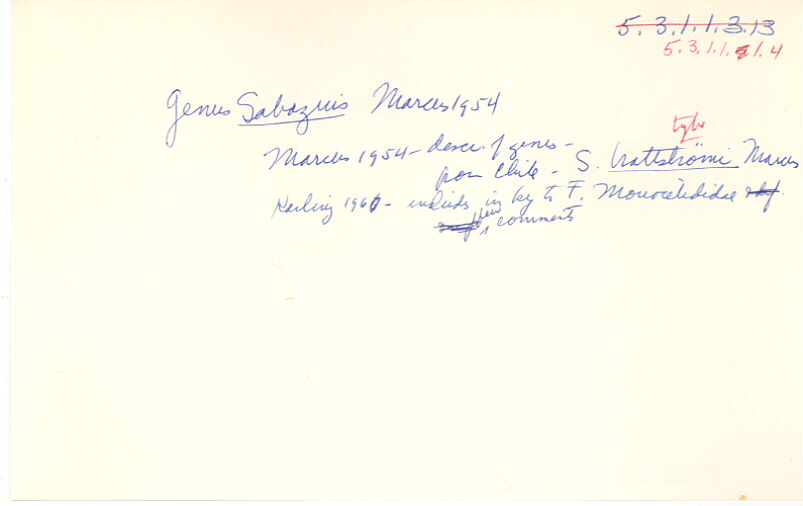 5.3.1.1.3.13
5.3.1.1.1.4
Genus Sabazius Marcus 1954
type
Marcus 1954 - descr. of genus -
from Chile - S. brattströmi Marcus
Karling 1966 - includes in key to F. Monocelididae
few comments